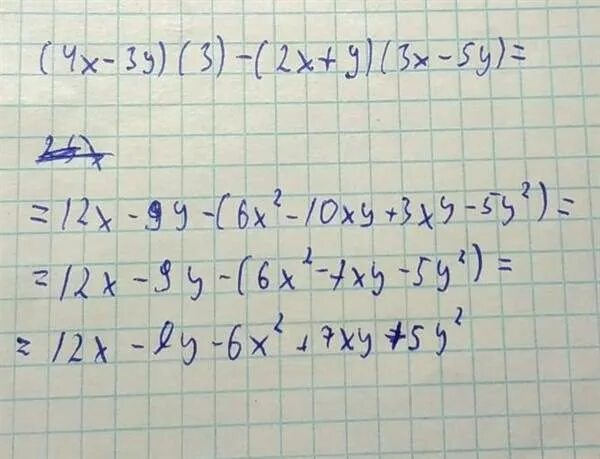 (4x-3y)(3)-(2x+y)(3x-5y)=
=12x-9y-(6x²-10xy+3xy-5y²)=
=12x-9y-(6x²-7xy-5y²)=
=12x-9y-6x²+7xy+5y²